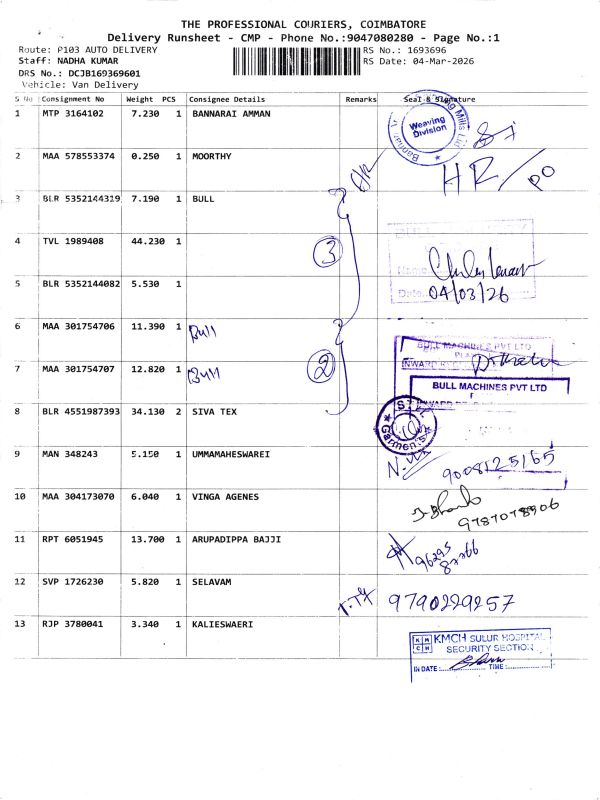 THE PROFESSIONAL COURIERS, COIMBATORE
Delivery Runsheet - CMP - Phone No.:9047080280 - Page No.:1
Route: P103 AUTO DELIVERY
RS No.: 1693696
Staff: NADHA KUMAR
RS Date: 04-Mar-2026
DRS No.: DCJB169369601
Vehicle: Van Delivery
S No Consignment No Weight PCS Consignee Details Remarks Seal & Signature
1 MTP 3164102 7.230 1 BANNARAI AMMAN
Weaving Division
2 MAA 578553374 0.250 1 MOORTHY
HR/PO
3 BLR 5352144319 7.190 1 BULL
4 TVL 1989408 44.230 1
3
Name
Date 04/03/26
5 BLR 5352144082 5.530 1
6 MAA 301754706 11.390 1 Bull
BULL MACHINES PVT LTD
7 MAA 301754707 12.820 1 Bull
2
BULL MACHINES PVT LTD
8 BLR 4551987393 34.130 2 SIVA TEX
Garments
9 MAN 348243 5.150 1 UMMAMAHESWAREI
9008125165
10 MAA 304173070 6.040 1 VINGA AGENES
9787078906
11 RPT 6051945 13.700 1 ARUPADIPPA BAJJI
96295
87766
12 SVP 1726230 5.820 1 SELAVAM
9790229257
13 RJP 3780041 3.340 1 KALIESWAERI
KMCH SULUR HOSPITAL
SECURITY SECTION
IN DATE: TIME: